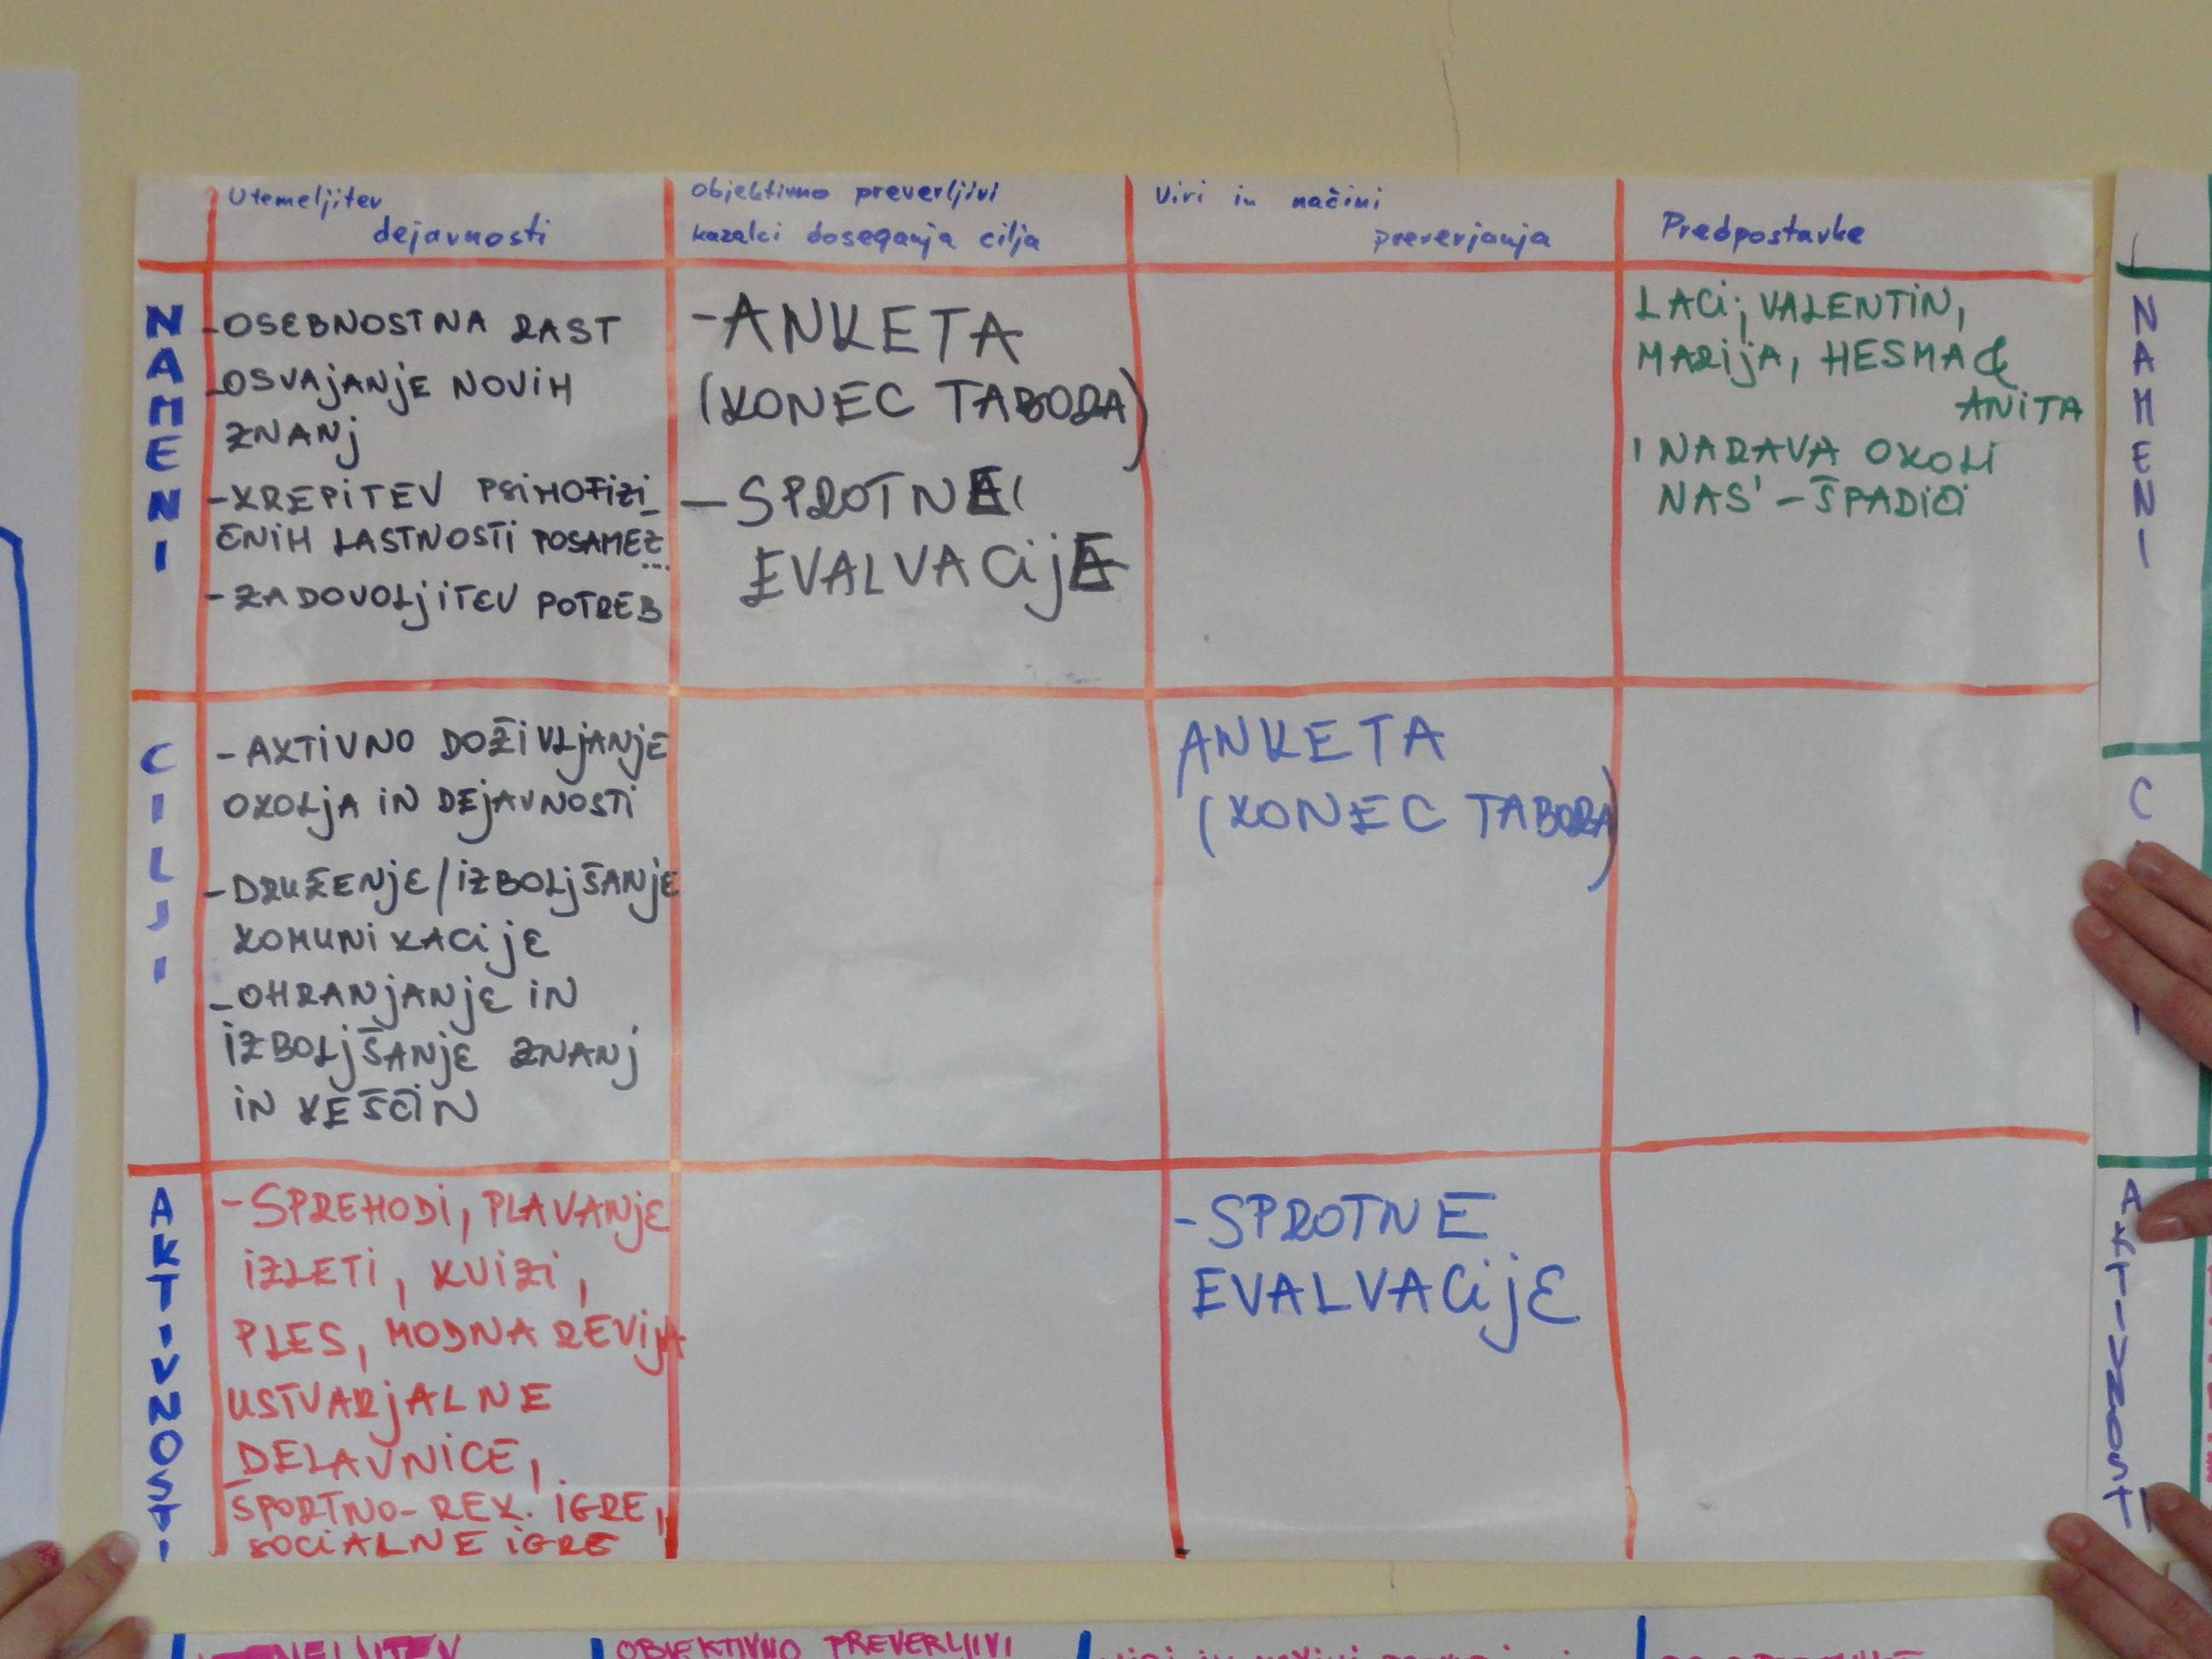 Utemeljitev
dejavnosti
Objektivno preverljivi
kazalci doseganja cilja
Viri in načini
preverjanja
Predpostavke
NAMENI
-OSEBNOSTNA RAST
-OSVAJANJE NOVIH
ZNANJ
-KREPITEV PSIHOFIZI_
ČNIH LASTNOSTI POSAMEZ
...
-ZADOVOLJITEV POTREB
-ANKETA
(KONEC TABORA)
-SPROTNE
EVALVACIJE
LACI, VALENTIN,
MARIJA, HESMA &
ANITA
'NARAVA OKOLI
NAS' - ŠPADIČI
CILJI
-AKTIVNO DOŽIVLJANJE
OKOLJA IN DEJAVNOSTI
-DRUŽENJE/IZBOLJŠANJE
KOMUNIKACIJE
-OHRANJANJE IN
IZBOLJŠANJE ZNANJ
IN VEŠČIN
ANKETA
(KONEC TABORA)
AKTIVNOSTI
-SPREHODI, PLAVANJE
IZLETI, KVIZI,
PLES, MODNA REVIJA
USTVARJALNE
DELAVNICE,
ŠPORTNO-REK. IGRE,
SOCIALNE IGRE
-SPROTNE
EVALVACIJE
NAMENI
AKTIVNOSTI
OBJEKTIVNO PREVERLJIVI